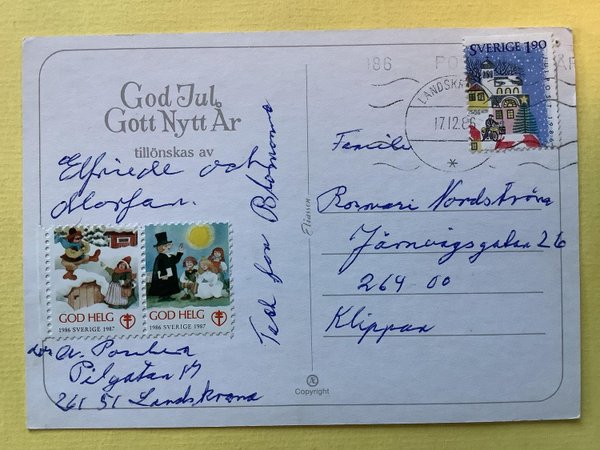 God Jul
Gott Nytt År
tillönskas av
Elfriede och
Morfar.
Tack för Blommorna
GOD HELG
1986 SVERIGE 1987
GOD HELG
1986 SVERIGE 1987
Pilgatan 17
261 51 Landskrona
Eliasson
Copyright
SVERIGE 1.90
LANDSKR
17.12.86
Familje
Rosmari Nordström
Järnvägsgatan 26
264 00
Klippan